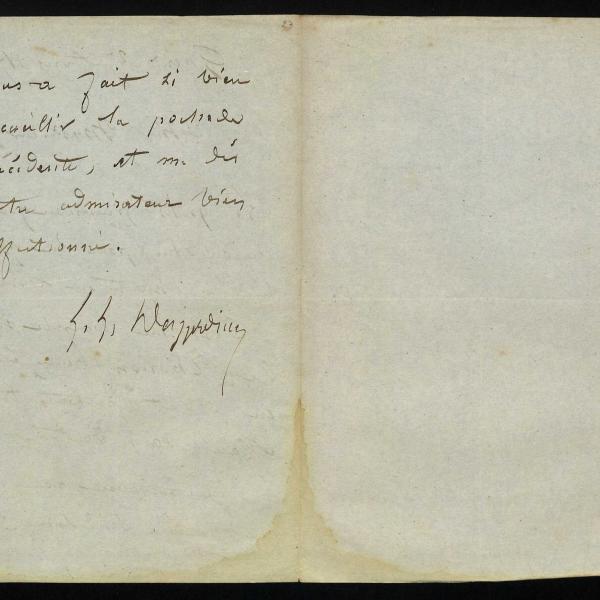 us-a fait si bien
cueillir la pochade
écédente, et me dis
tre admirateur bien
ffectionné.
Desjardins